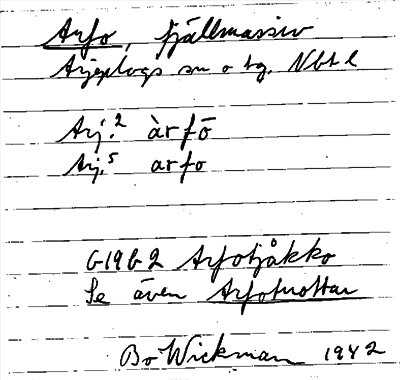 Arfo, fjällmassiv
Arjeplogs sn o tg. Nbt l
Arj.² àrfō
Arj.⁵ arfo
G19b2 Arfotjåkko
Se även Arfotuottar
Bo Wickman 1942